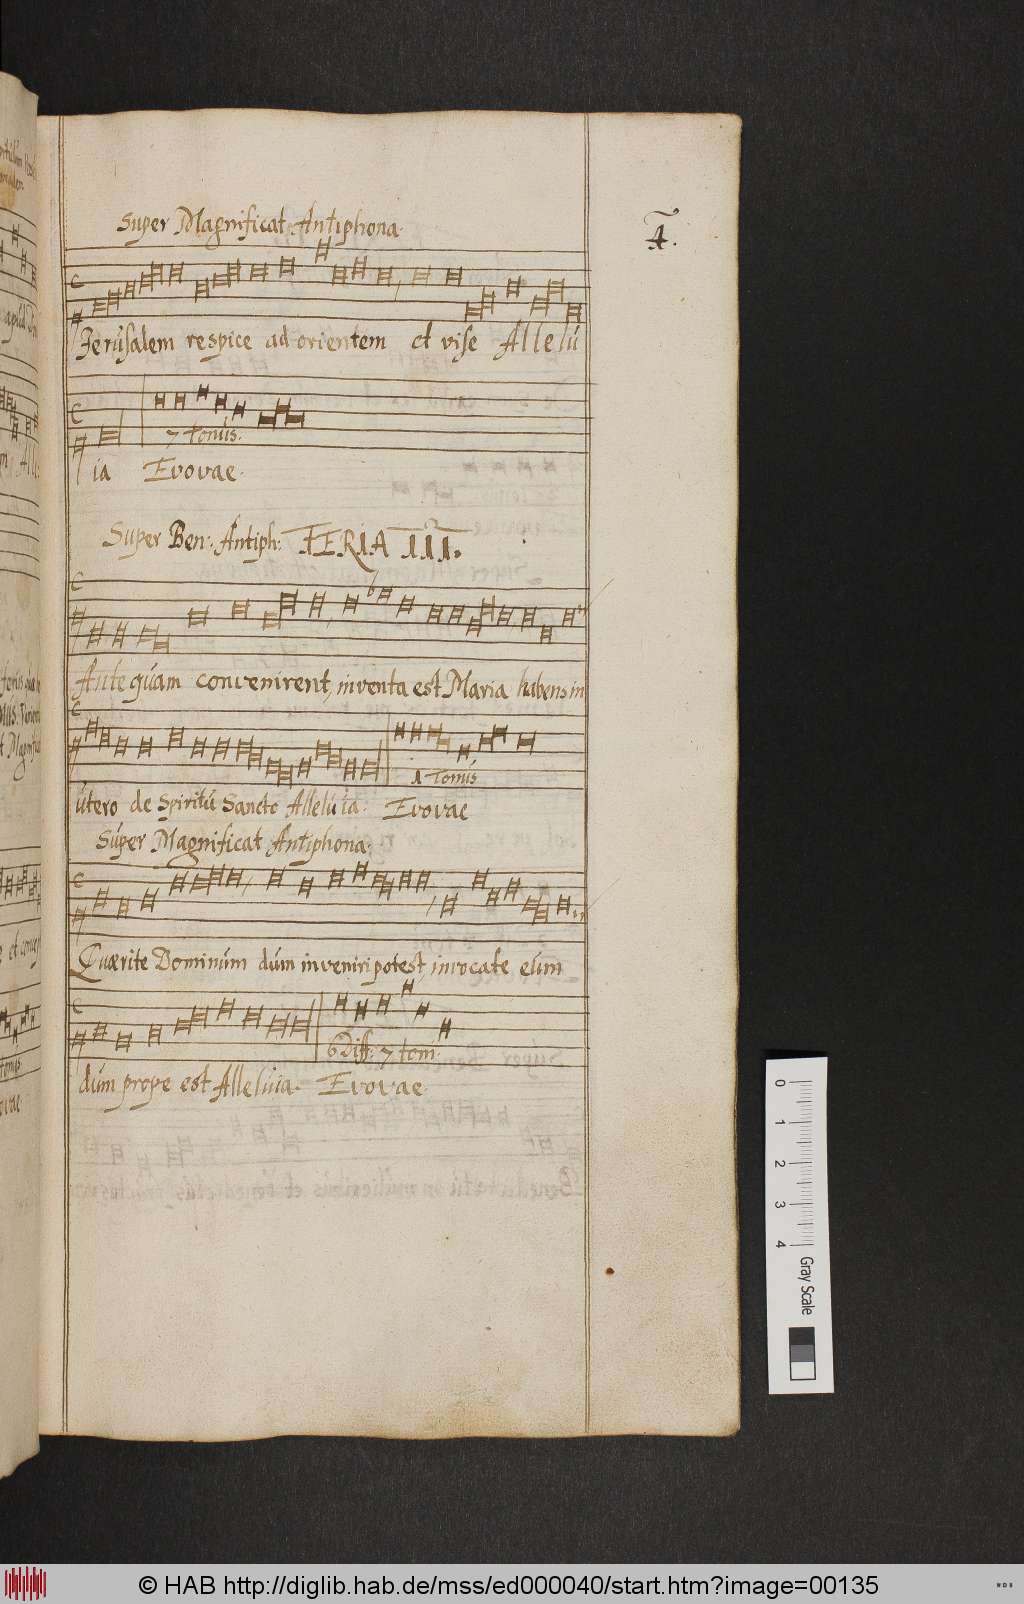 Super Magnificat Antiphona.
4.
Jerúsalem respice ad orientem et vise Allelú
7 Tonús.
ia Evovae.
Super Ben: Antiph: FERIA III.
Ante qúam convenirent, inventa est Maria habens in
1 Tonús
útero de Spiritú Sancto Alleluia. Evovae
Súper Magnificat Antiphona.
Quærite Dominúm dúm inveniri potest, invocate eúm
6 Diff: 7 toni.
dúm prope est Allelúia. Evovae.
0
1
2
3
4
Gray Scale
© HAB http://diglib.hab.de/mss/ed000040/start.htm?image=00135